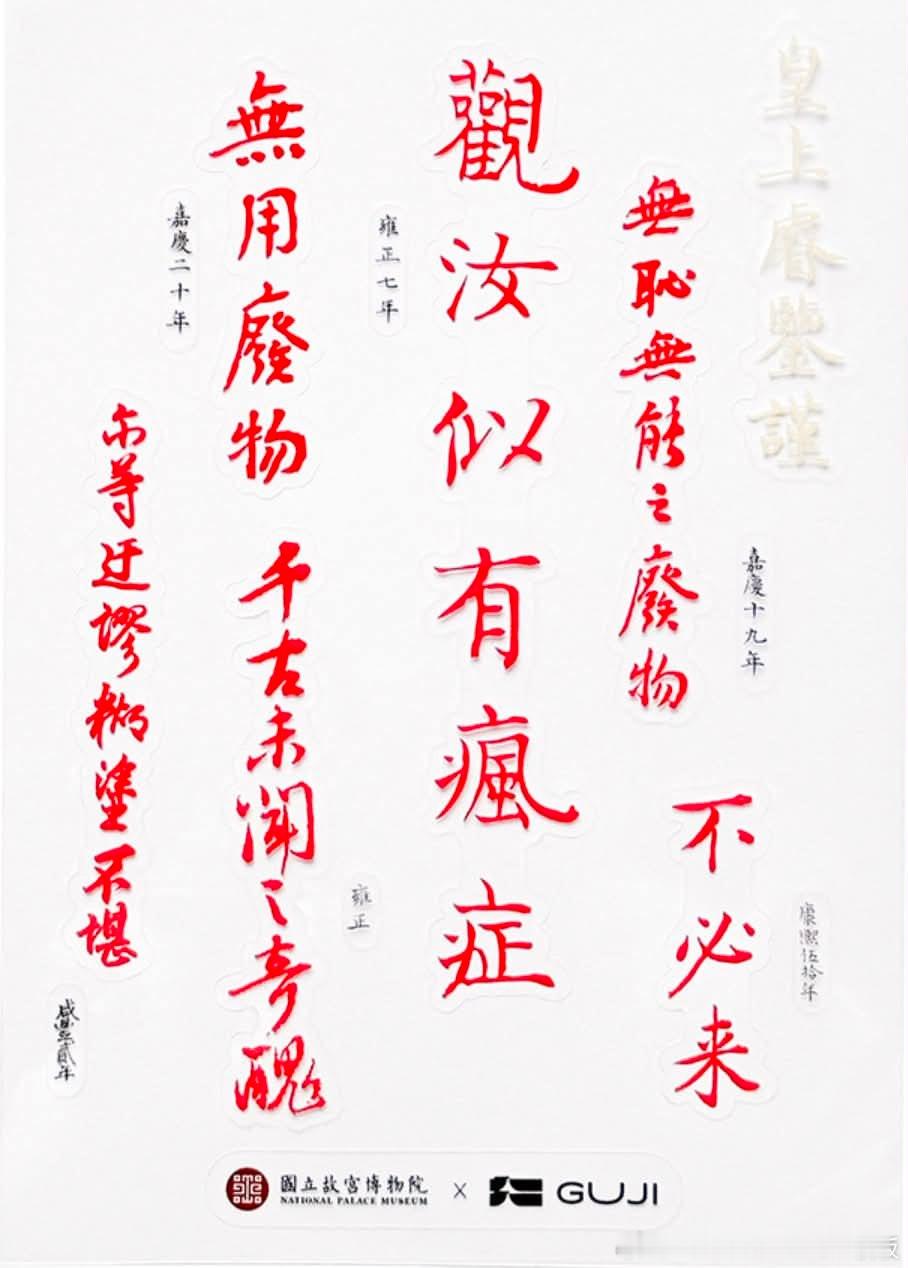 皇上睿鑒謹
無恥無能之廢物
嘉慶十九年
不必来
康熙伍拾年
觀汝似有瘋症
雍正七年
無用廢物
嘉慶二十年
千古未聞之奇醜
雍正
尔等迂謬糊塗不堪
咸豐貳年
國立故宮博物院
NATIONAL PALACE MUSEUM
x
GUJI